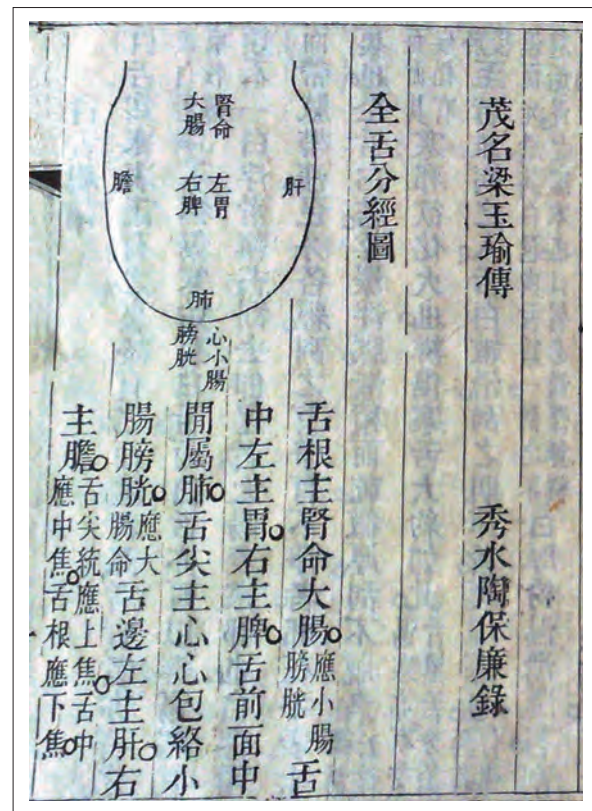 茂名梁玉瑜傳
秀水陶保廉錄
全舌分經圖
腎命
大腸
左胃
右脾
肝
膽
肺
心小腸
膀胱
舌根主腎命大腸。應小腸膀胱舌
中左主胃。右主脾。舌前面中
閒屬肺。舌尖主心心包絡小
腸膀胱。應大腸命舌邊左主肝。右
主膽。舌尖統應上焦。舌中應中焦。舌根應下焦。